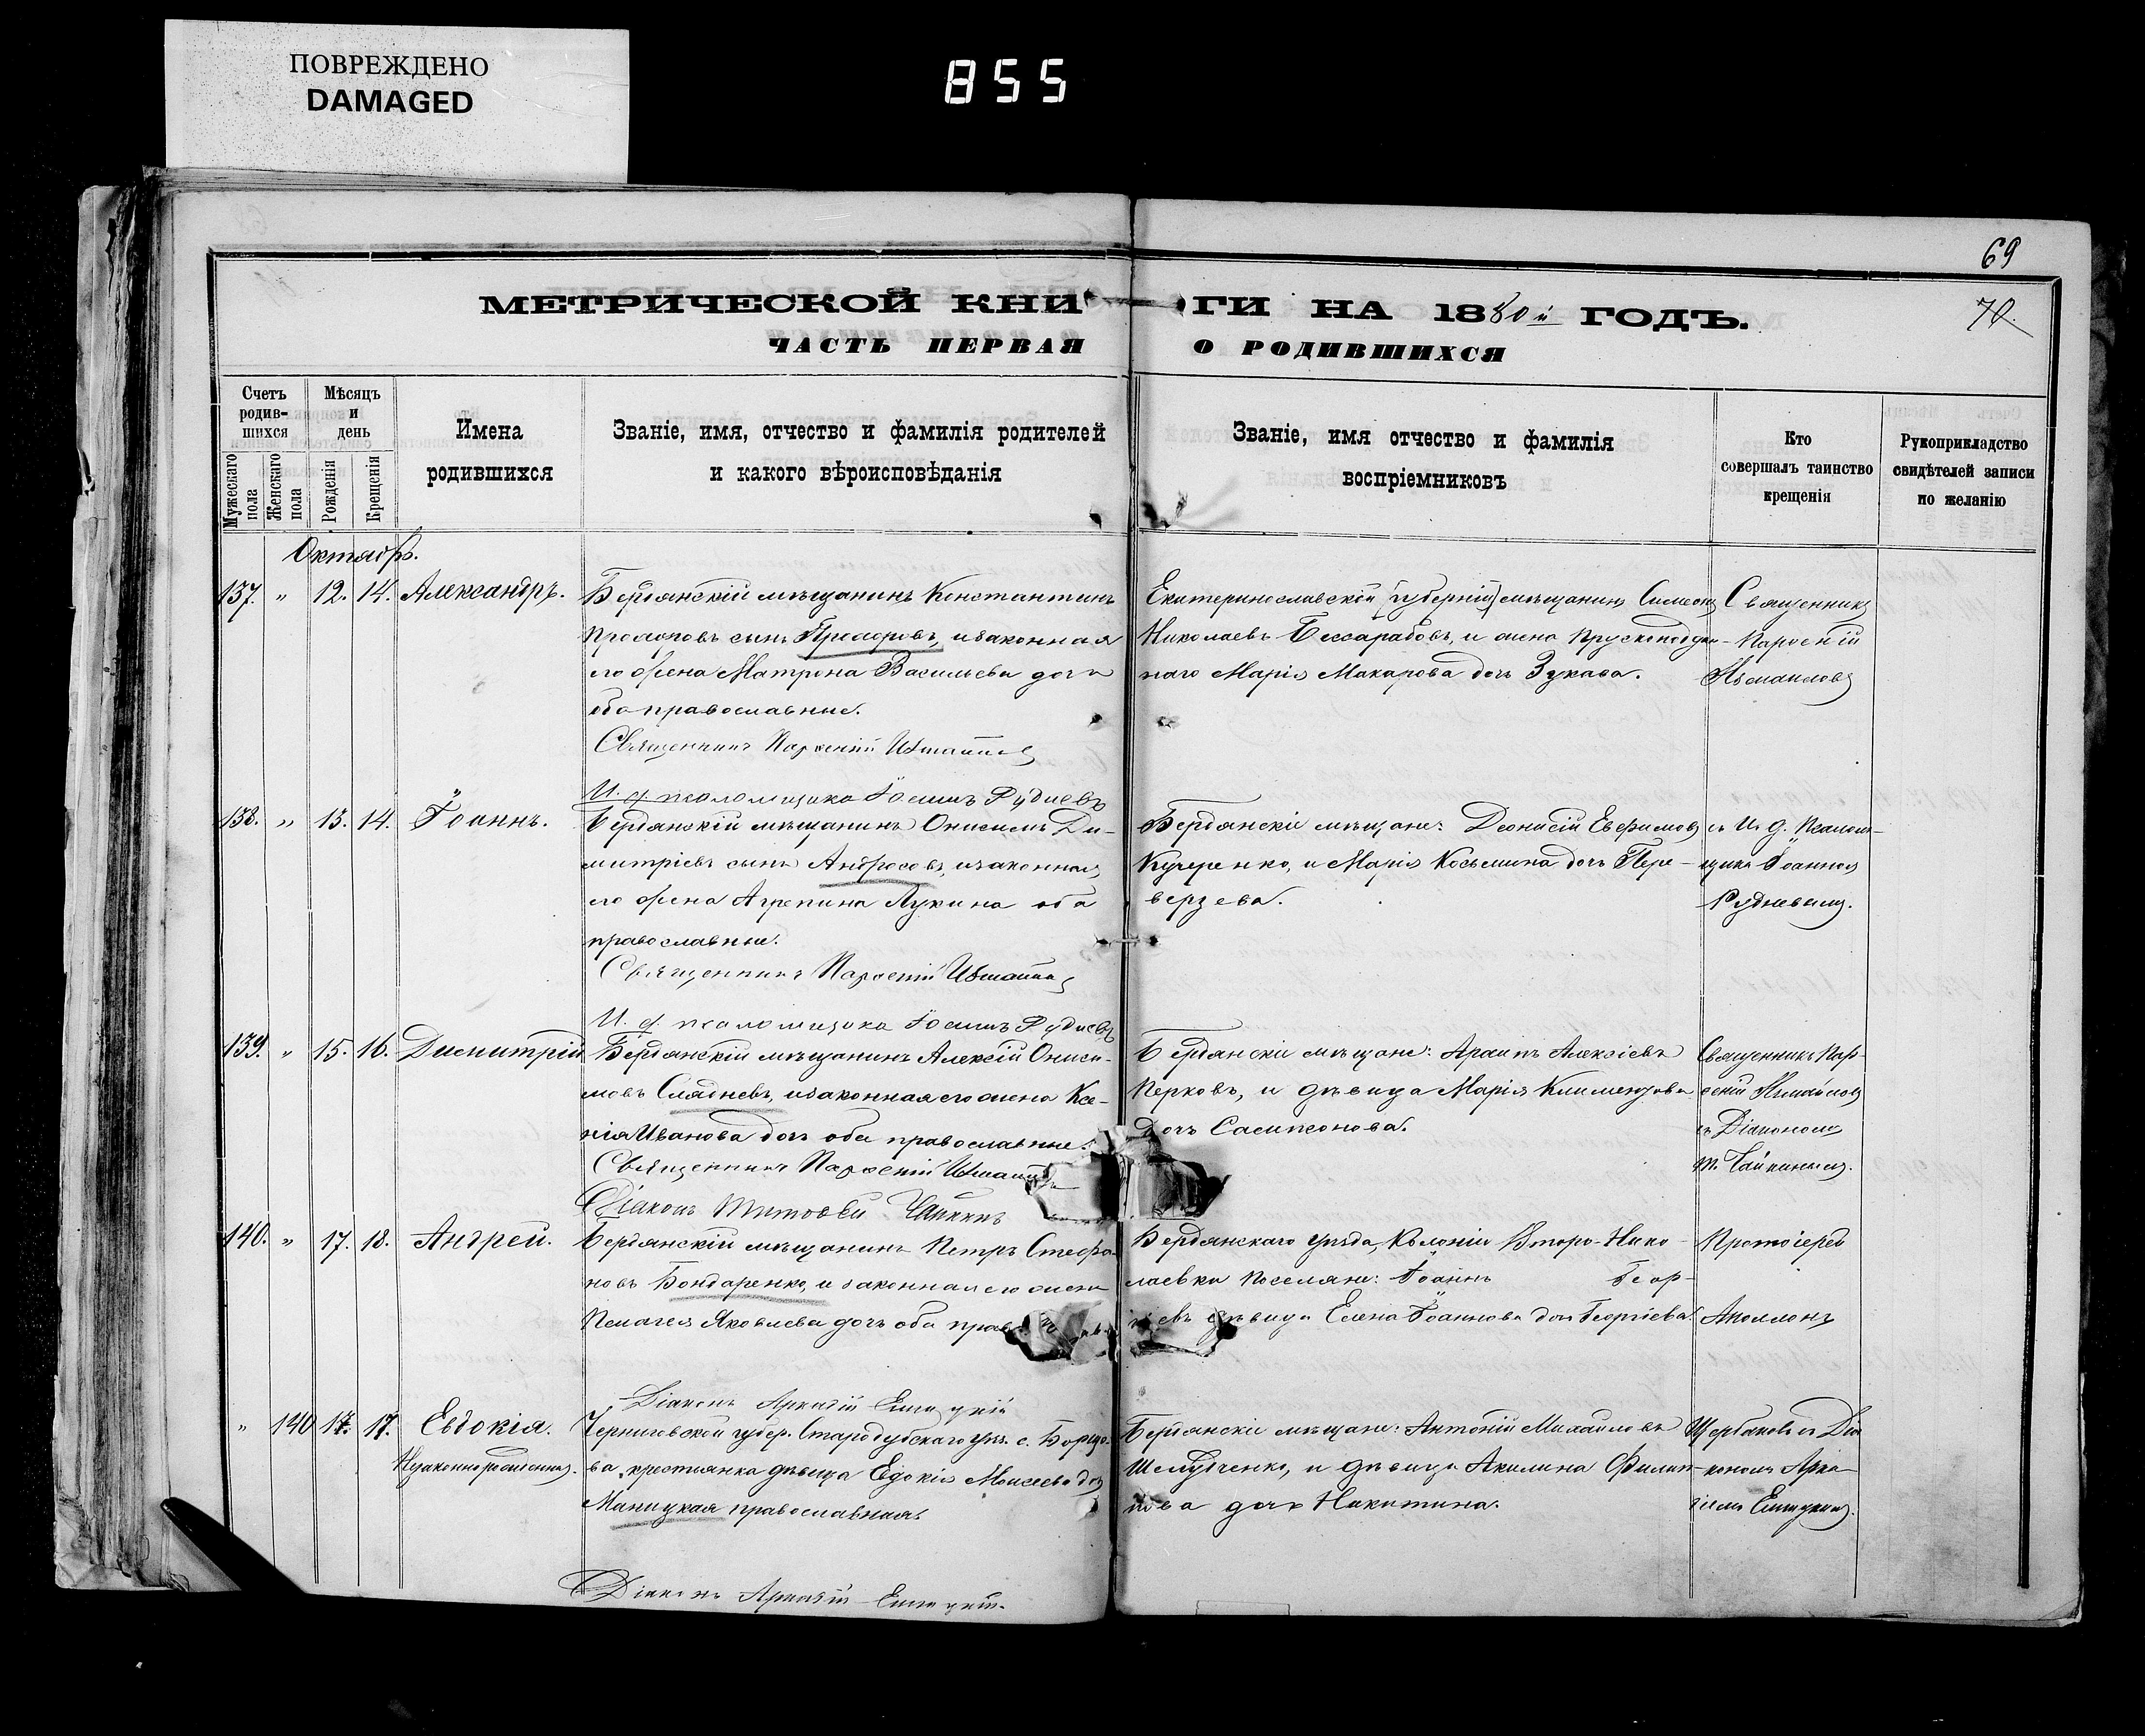 ПОВРЕЖДЕНО
DAMAGED
855
69
70.
МЕТРИЧЕСКОЙ КНИГИ НА 1880й ГОДЪ.
ЧАСТЬ ПЕРВАЯ О РОДИВШИХСЯ
Счетъ родив-шихся
Мужескаго пола
Женскаго пола
Мѣсяцъ и день
Рожденія
Крещенія
Имена родившихся
Званіе, имя, отчество и фамилія родителей
и какого вѣроисповѣданія
Званіе, имя отчество и фамилія
воспріемниковъ
Кто
совершалъ таинство
крещенія
Рукоприкладство
свидѣтелей записи
по желанію
Октябрь.
137. " 12. 14. Александръ.
Бердянскій мѣщанинъ Константинъ
сынъ и законная
его жена Матрона Васильева дочь
оба православные.
Священникъ Парѳеній Измаиловъ
Екатеринославской [губерніи] мѣщанинъ Симеонъ
Николаевъ Бессарабовъ, и жена Прусскоподдан-
наго Марія Макарова дочь Зукава.
Священникъ
Парѳеній
Измаиловъ
И. д. псаломщика Іоаннъ Рудневъ
138. " 13. 14. Іоаннъ.
Бердянскій мѣщанинъ Онисимъ Ди-
митріевъ сынъ Андросовъ, и законная
его жена Агрепина Лукина оба
православные.
Священникъ Парѳеній Измаиловъ
Бердянскіе мѣщане: Діонисій Евфимовъ
Кучеренко, и Марія Косьмина дочь Пере-
верзева.
съ И. д. Псалом-
щика Іоанномъ
Рудневымъ.
И. д. псаломщика Іоаннъ Рудневъ
139. " 15. 16. Димитрій
Бердянскій мѣщанинъ Алексій Ониси-
мовъ Слядневъ, и законная его жена Ксе-
нія Иванова дочь оба православные.
Священникъ Парѳеній Измаиловъ
Діаконъ Тимоѳей Чайкинъ
Бердянскіе мѣщане: Архипъ Алексіевъ
Перковъ, и дѣвица Марія Климентова
дочь Сампсонова.
Священникъ Пар-
ѳеній Измаиловъ
съ Діакономъ
Т. Чайкинымъ.
140. " 17. 18. Андрей.
Бердянскій мѣщанинъ Петръ Стефа-
новъ Бондаренко, и законная его жена
Пелагея Яковлева дочь оба прав
Діаконъ Аркадій
Бердянскаго уѣзда, Колоніи Второ-Нико-
лаевки поселяне: Іоаннъ Геор-
гіевъ дѣвица Елена Іоаннова дочь Георгіева.
Протоіерей
Аполлонъ
" 140 17. 17. Евдокія.
Незаконнорожденная.
Черниговской губер. Стародубскаго уѣз. с. Борщо-
ва, крестьянка дѣвица Евдокія Моисеева дочь
Маницкая православная.
Діаконъ Аркадій
Бердянскіе мѣщане: Антоній Михаиловъ
Шелудченко, и дѣвица Акилина Филип-
пова дочь Никитина.
Щербаковъ съ Діа-
кономъ Арка-
діемъ